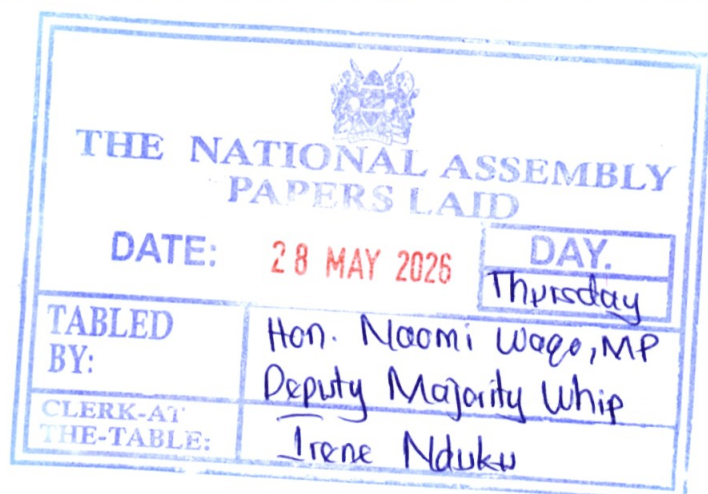 THE NATIONAL ASSEMBLY
PAPERS LAID
DATE: 28 MAY 2026
DAY.
Thursday
TABLED BY:
Hon. Naomi Waqo, MP
Deputy Majority Whip
CLERK-AT THE-TABLE:
Irene Nduku